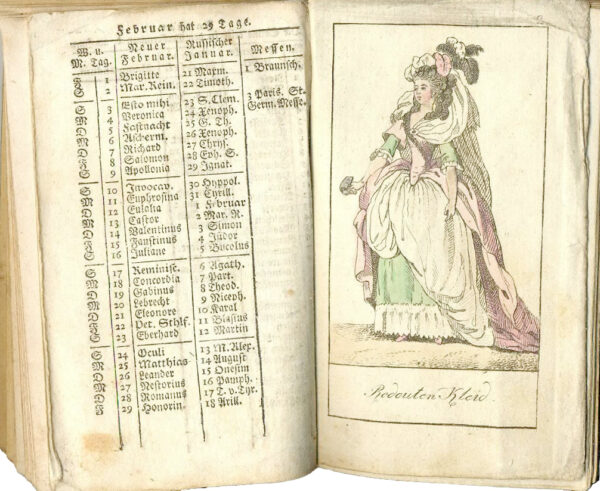 Februar hat 29 Tage.
W. u. M. Tag. Neuer Februar. Russischer Januar. Messen.
1 Brigitte 21 Maxm. 1 Braunsch.
2 Mar. Rein. 22 Timoth.
S 3 Esto mihi 23 S. Clem. 3 Paris. St.
M 4 Veronica 24 Xenoph. Germ. Messe.
D 5 Fastnacht 25 G. Th.
M 6 Ascherm. 26 Xenoph.
D 7 Richard 27 Chrys.
8 Salomon 28 Eph. S.
9 Apollonia 29 Ignat.
S 10 Invocav. 30 Hyppol.
M 11 Euphrosina 31 Cyrill.
D 12 Eulalia 1 Februar
M 13 Castor 2 Mar. R.
D 14 Valentinus 3 Simon
15 Faustinus 4 Isidor
16 Juliane 5 Bucolus
S 17 Reminisc. 6 Agath.
M 18 Concordia 7 Part.
D 19 Gabinus 8 Theod.
M 20 Lebrecht 9 Niceph.
D 21 Eleonore 10 Karal
22 Pet. Sthlf. 11 Blasius
23 Eberhard 12 Martin
S 24 Oculi 13 M. Alex.
M 25 Matthias 14 August
D 26 Leander 15 Onesim
M 27 Nestorius 16 Pamph.
D 28 Romanus 17 T. v. Tyr.
29 Honorin. 18 Arill.
Redouten Kleid.